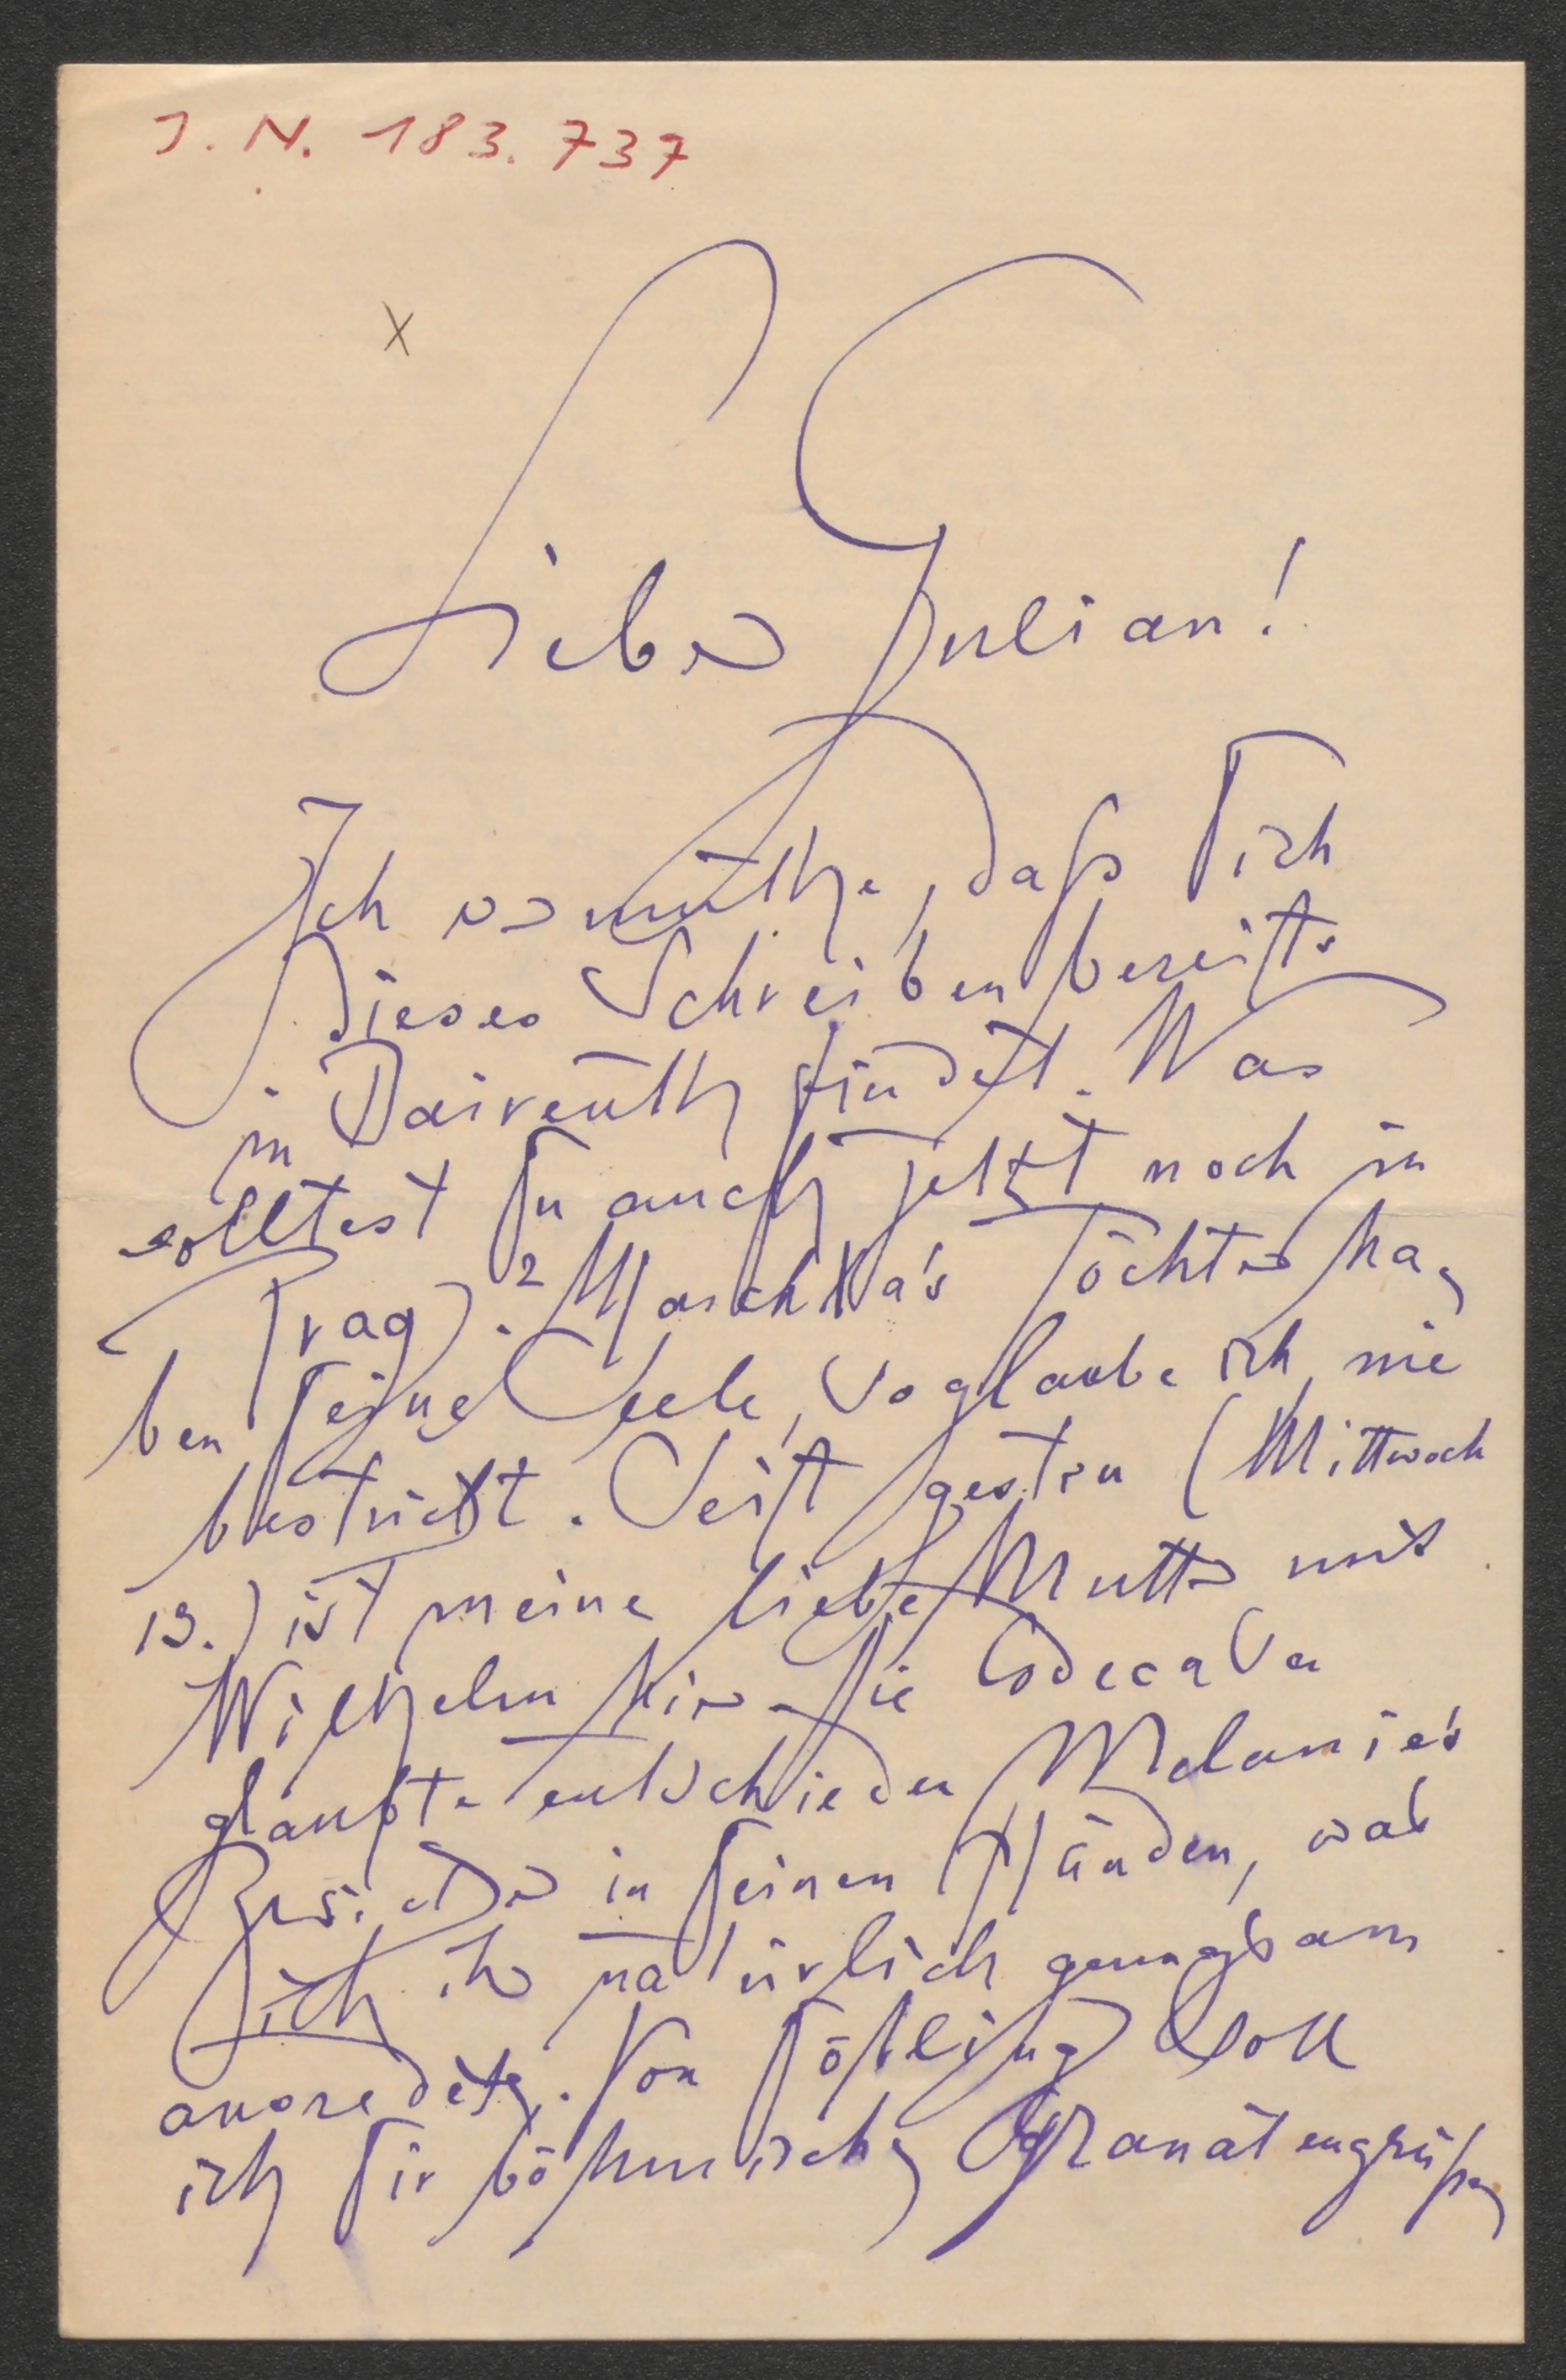 I. N. 183.737
x
Lieber Julian!
Ich vermuthe, daß Dich
dieses Schreiben bereits
in Baireuth findet. (Was
solltest Du auch jetzt noch in
Prag)? Maschka's Töchter ha-
ben Deine Seele, so glaube ich, nie
bestrickt. Seit gestern (Mittwoch
13.) ist meine liebe Mutter mit
Wilhelm hier. Die
glaubte entschieden Melanie's
in Deinen Händen, was
ich ihr natürlich genugsam
ausredete. Von soll
ich Dir böhmische Granatengrüße